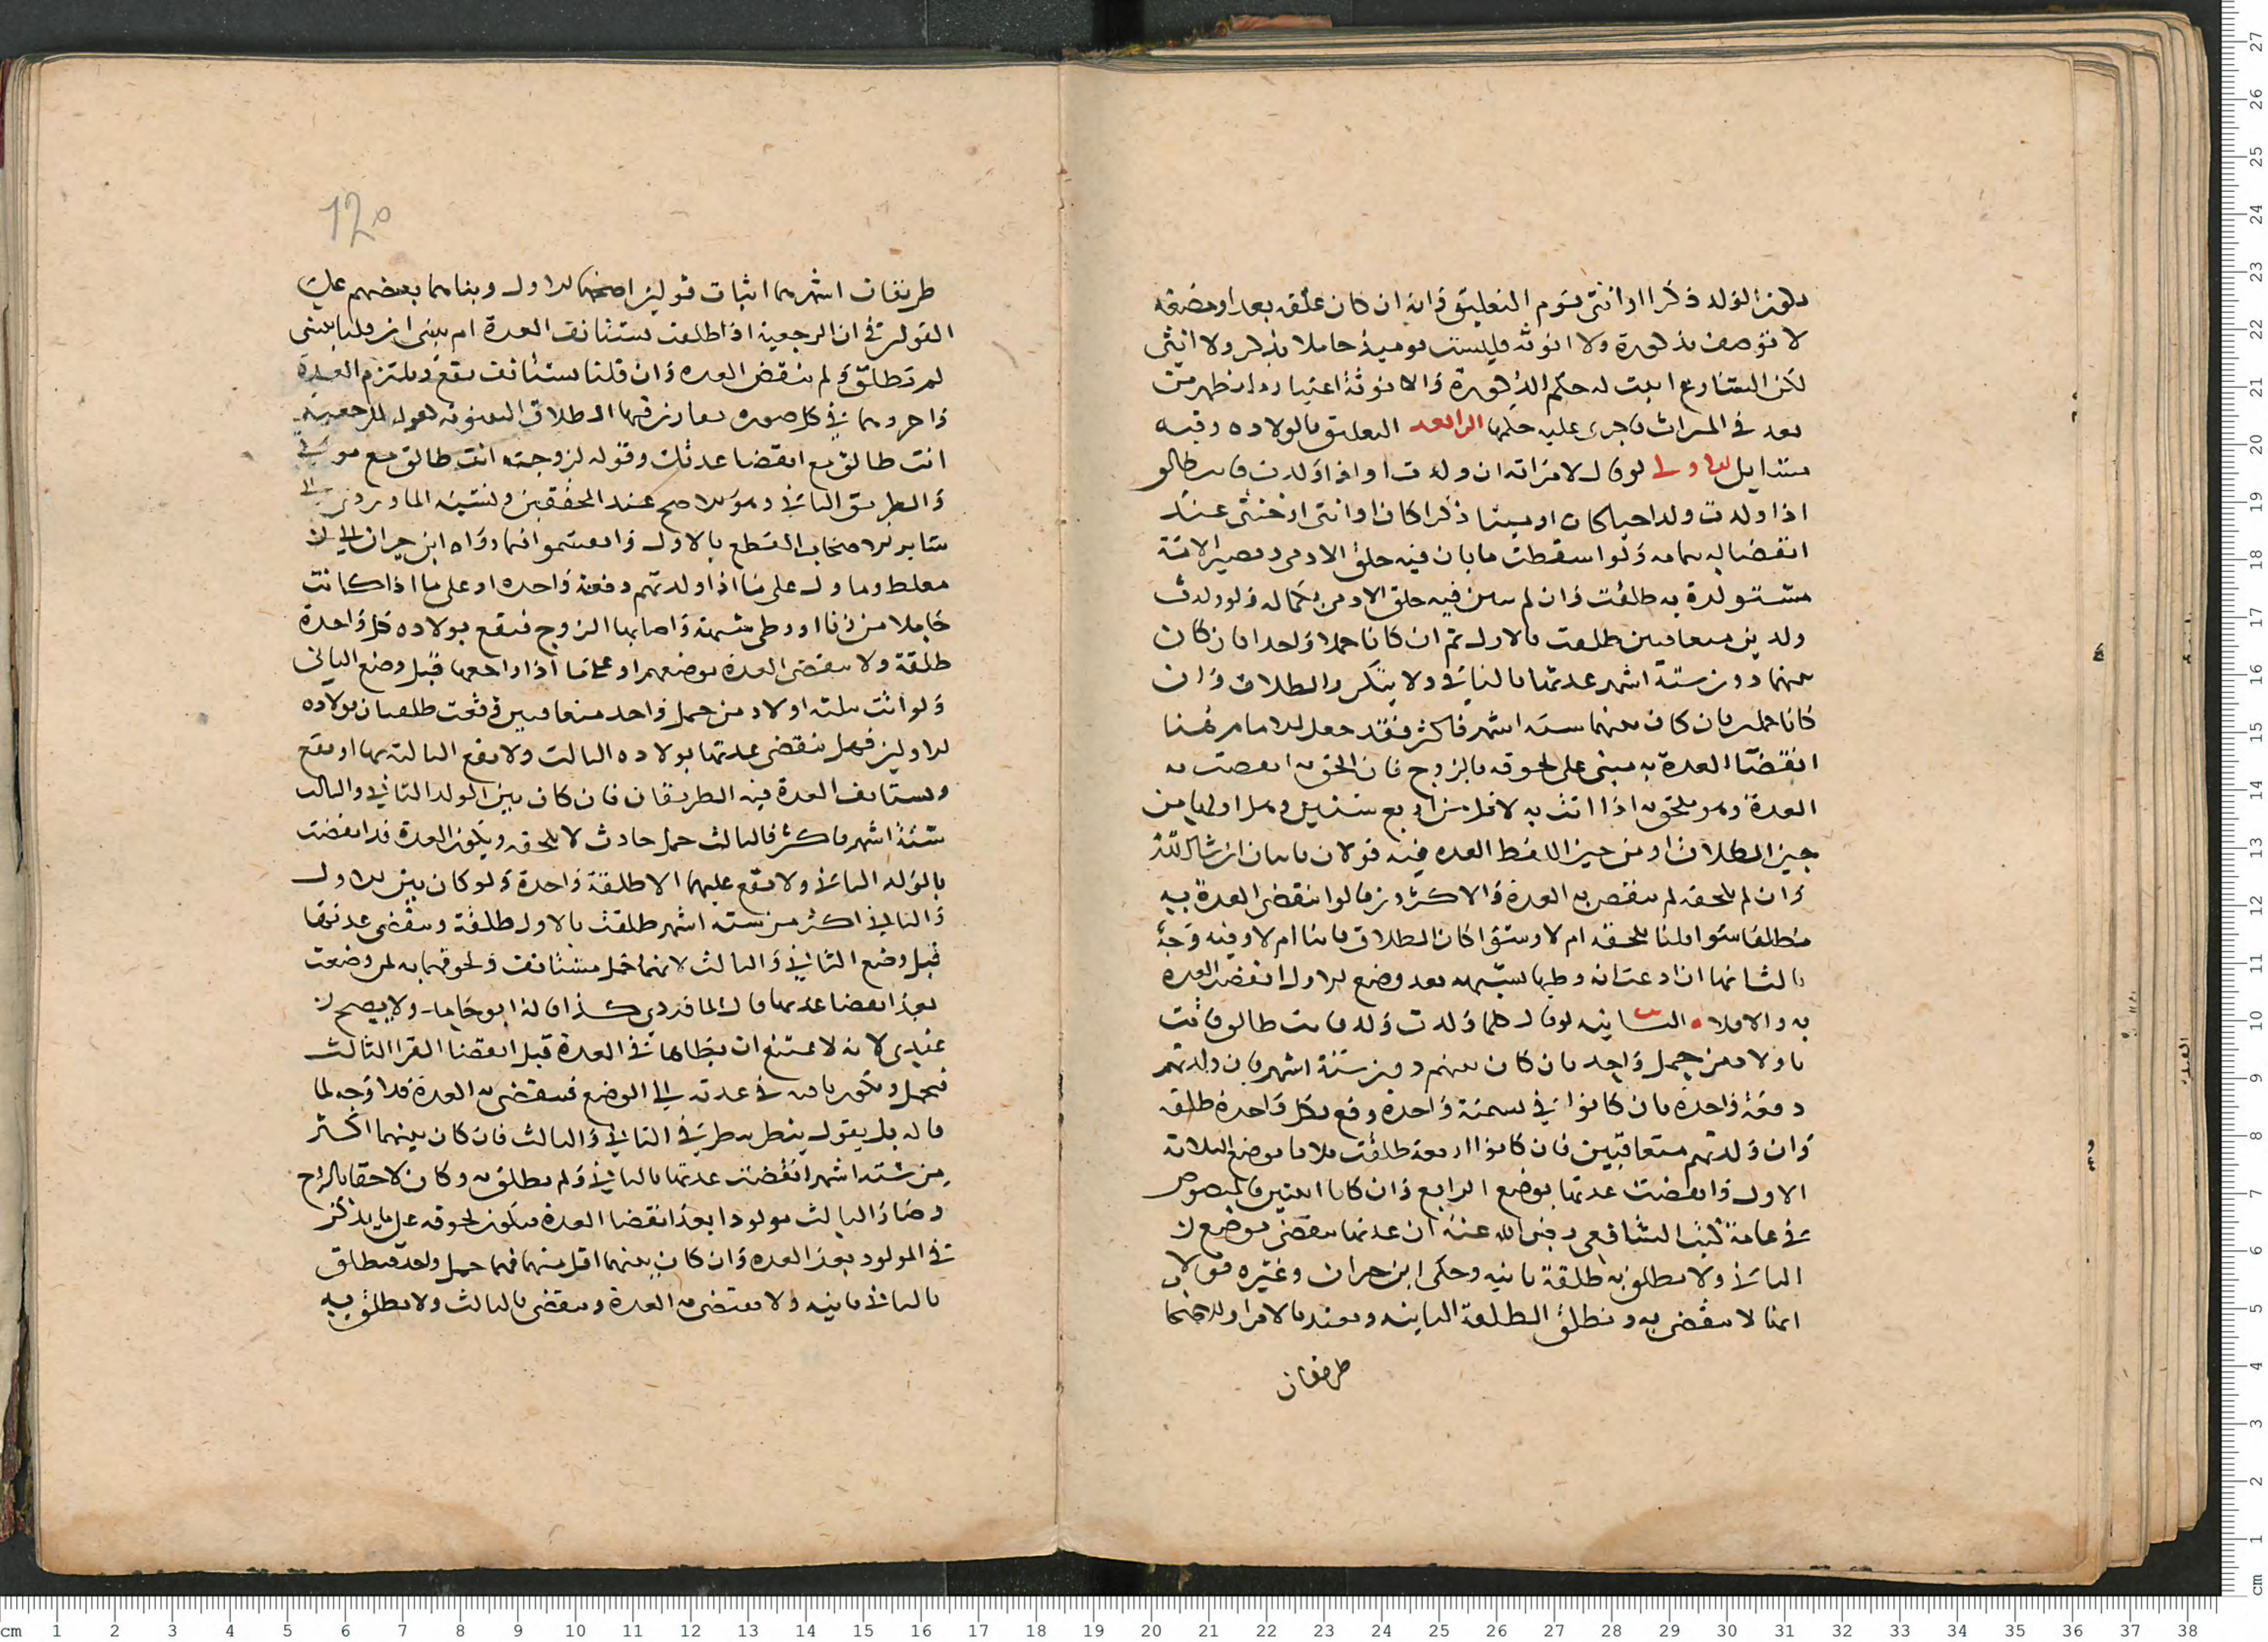 يكون الولد ذكرا او انثى يوم التعليق فانه ان كان علقة بعد او مضغة
لا توصف بذكورة ولا انوثة فليست يوميذ حاملا بذكر ولا انثى
لكن الشارع اثبت له حكم الذكورة والانوثة اعتبارا بما يظهر من
بعد في الميراث فاجرى عليه حكمها الرابعه التعليق بالولادة وفيه
مسايل الاولى لو قال لامراته ان ولدت او اذا ولدت فانت طالق
اذا ولدت ولدا حيا كان او ميتا ذكرا كان او انثى او خنثى عند
انفصاله بتمامه ولو اسقطت ما بان فيه خلق الادمي وتصير الامة
مستولدة به طلقت وان لم يبين فيه خلق الادمي بكماله فلا ولو ولدت
ولدين متعاقبين طلقت بالاول ثم ان كانا حملا واحدا بان كان
بينهما دون ستة اشهر عدتها بالثاني ولا يتكرر الطلاق وان
كانا حملين بان كان بينهما ستة اشهر فاكثر فقد جعل الامام هنا
انقضا العدة به مبني على لحوقه بالزوج فان الحق به انقضت به
العدة وهو يلحق به اذا اتت به لاقل من اربع سنين وهل اولها من
حين الطلاق او من حين انقضا العدة فيه قولان ياتيان ان شا الله
وان لم يلحقه لم تنقض به العدة والاكثرون قالوا تنقضي العدة به
مطلقا سوا قلنا يلحقه ام لا وسوا كان الطلاق باينا ام لا وفيه وجه
ثالث انها ان ادعت انه وطيها بشبهة بعد وضع الاول انقضت العدة
به والا فلا الثانيه لو قال كلما ولدت ولدا فانت طالق فاتت
باولاد من حمل واحد بان كان بينهم دون ستة اشهر فان ولدتهم
دفعة واحدة بان كانوا في مشيمة واحدة وقع بكل واحدة طلقة
وان ولدتهم متعاقبين فان كانوا اربعة طلقت ثلاثا بوضع الثلاثة
الاول وانقضت عدتها بوضع الرابع وان كانا اثنين فالمنصوص
في عامة كتب الشافعي رضي الله عنه ان عدتها تنقضي بوضع
الثاني ولا تطلق به طلقة ثانية وحكى ابن خيران وغيره قولا
انها لا تنقضي به وتطلق الطلقة الثانية وتعتد بالاقرا وللاصحاب
طريقان
120
طريقان اشهرهما اثبات قولين اصحهما الاول وبناهما بعضهم على
القولين في ان الرجعية اذا طلقت تستانف العدة ام تبني ان قلنا تبني
لم تطلق ولم تنقض العدة وان قلنا تستانف يقع ويلتزم العدة
واجروهما في كل صورة يقارن فيها الطلاق البينونة كقوله للرجعية
انت طالق مع انقضا عدتك وقوله لزوجته انت طالق مع موتي
والطريق الثاني وهو الاصح عند المحققين ونسبه الماوردي الى
ساير الاصحاب القطع بالاول وانقسموا فما رواه ابن خيران الى
مغلط وماول على ما اذا ولدتهم دفعة واحدة او على ما اذا كانت
حاملا من زنا او وطي شبهة واصابها الزوج فيقع بولادة كل واحدة
طلقة ولا تنقضي العدة بوضعهم او على ما اذا راجعها قبل وضع الثاني
ولو اتت بثلاثة اولاد من حمل واحد متعاقبين وقعت طلقتان بولادة
الاولين فهل تنقضي عدتها بولادة الثالث ولا يقع الثالثة بها او يقع
وتستانف العدة فيه الطريقان فان كان بين الولد الثاني والثالث
ستة اشهر فاكثر فالثالث حمل حادث لا يلحقه وتكون العدة قد انقضت
بالولد الثاني ولا يقع عليها الا طلقة واحدة ولو كان بين الاول
والثاني اكثر من ستة اشهر طلقت بالاول طلقة وتنقضي عدتها
قبل وضع الثاني والثالث لانهما حمل مستانف ولحوقهما به لمن وضعت
بعد انقضا عدتها قال الماوردي كذا قاله ابو حامد ولا يصح
عندي لانه لا يمتنع ان يطاها في العدة قبل انقضا القرا الثالث
فتحمل وتكون باقية في عدته الى الوضع فتنقضي به العدة فلا وجه لما
قاله بل يقول ينظر في الثاني والثالث فان كان بينهما اكثر
من ستة اشهر انقضت عدتها بالثاني ولم تطلق به وكان لاحقا بالزوج
وصار الثالث مولودا بعد انقضا العدة فيكون لحوقه على ما يذكر
في المولود بعد العدة وان كان بينهما اقل منها فهما حمل واحد فتطلق
بالثاني ثانية ولا تنقضي به العدة وتنقضي بالثالث ولا تطلق به